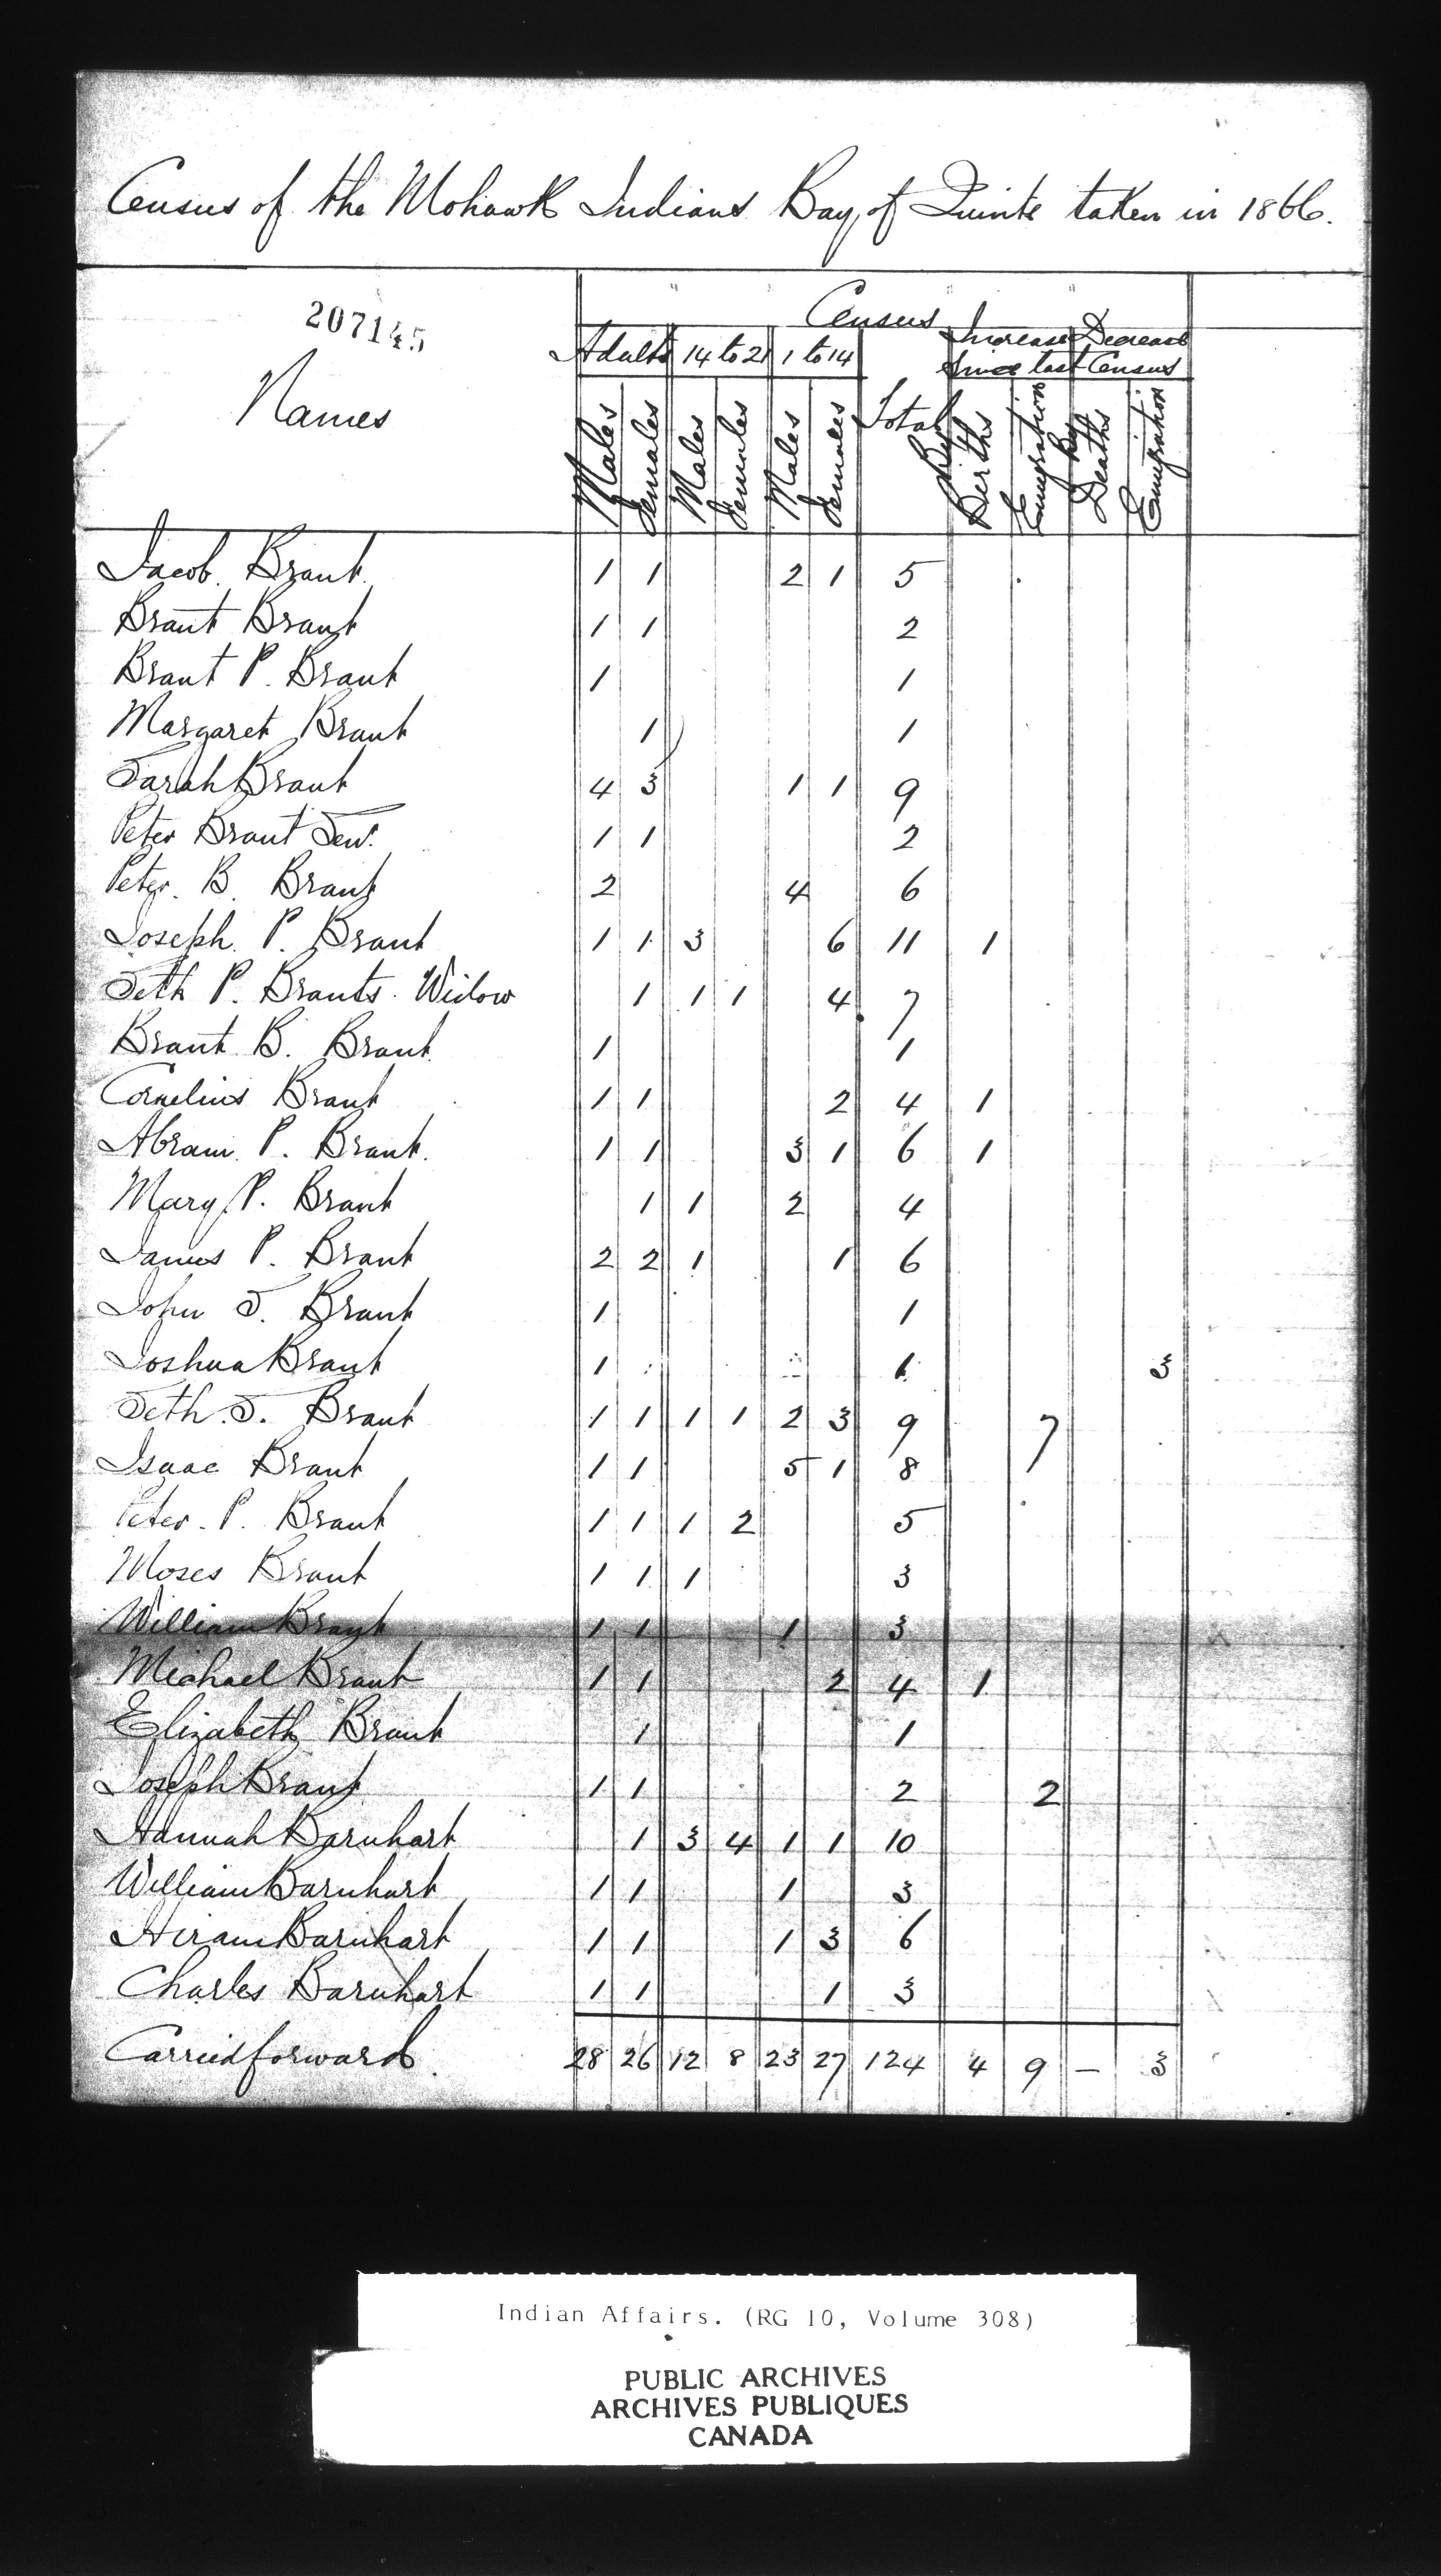 Census of the Mohawk Indians Bay of Quinte taken in 1866.
207145
Names
Census
Adults 14 to 21 1 to 14 Total Increase Decrease
Since last Census
Males Females Males Females Males Females By Births Emigration By Deaths Emigration
Jacob Brant 1 1 2 1 5
Brant Brant 1 1 2
Brant P. Brant 1 1
Margaret Brant 1 1
Sarah Brant 4 3 1 1 9
Peter Brant Senr. 1 1 2
Peter. B. Brant 2 4 6
Joseph. P. Brant 1 1 3 6 11 1
Seth P. Brants. Widow 1 1 1 4 7
Brant B. Brant 1 1
Cornelius Brant 1 1 2 4 1
Abram. P. Brant. 1 1 3 1 6 1
Mary P. Brant 1 1 2 4
James P. Brant 2 2 1 1 6
John S. Brant 1 1
Joshua Brant 1 1 3
Seth. S. Brant 1 1 1 1 2 3 9 7
Isaac Brant 1 1 5 1 8
Peter. P. Brant 1 1 1 2 5
Moses Brant 1 1 1 3
William Brant 1 1 1 3
Michael Brant 1 1 2 4 1
Elizabeth Brant 1 1
Joseph Brant 1 1 2 2
Hannah Barnhart 1 3 4 1 1 10
William Barnhart 1 1 1 3
Hiram Barnhart 1 1 1 3 6
Charles Barnhart 1 1 1 3
Carried forward. 28 26 12 8 23 27 124 4 9 — 3
Indian Affairs. (RG 10, Volume 308)
PUBLIC ARCHIVES
ARCHIVES PUBLIQUES
CANADA